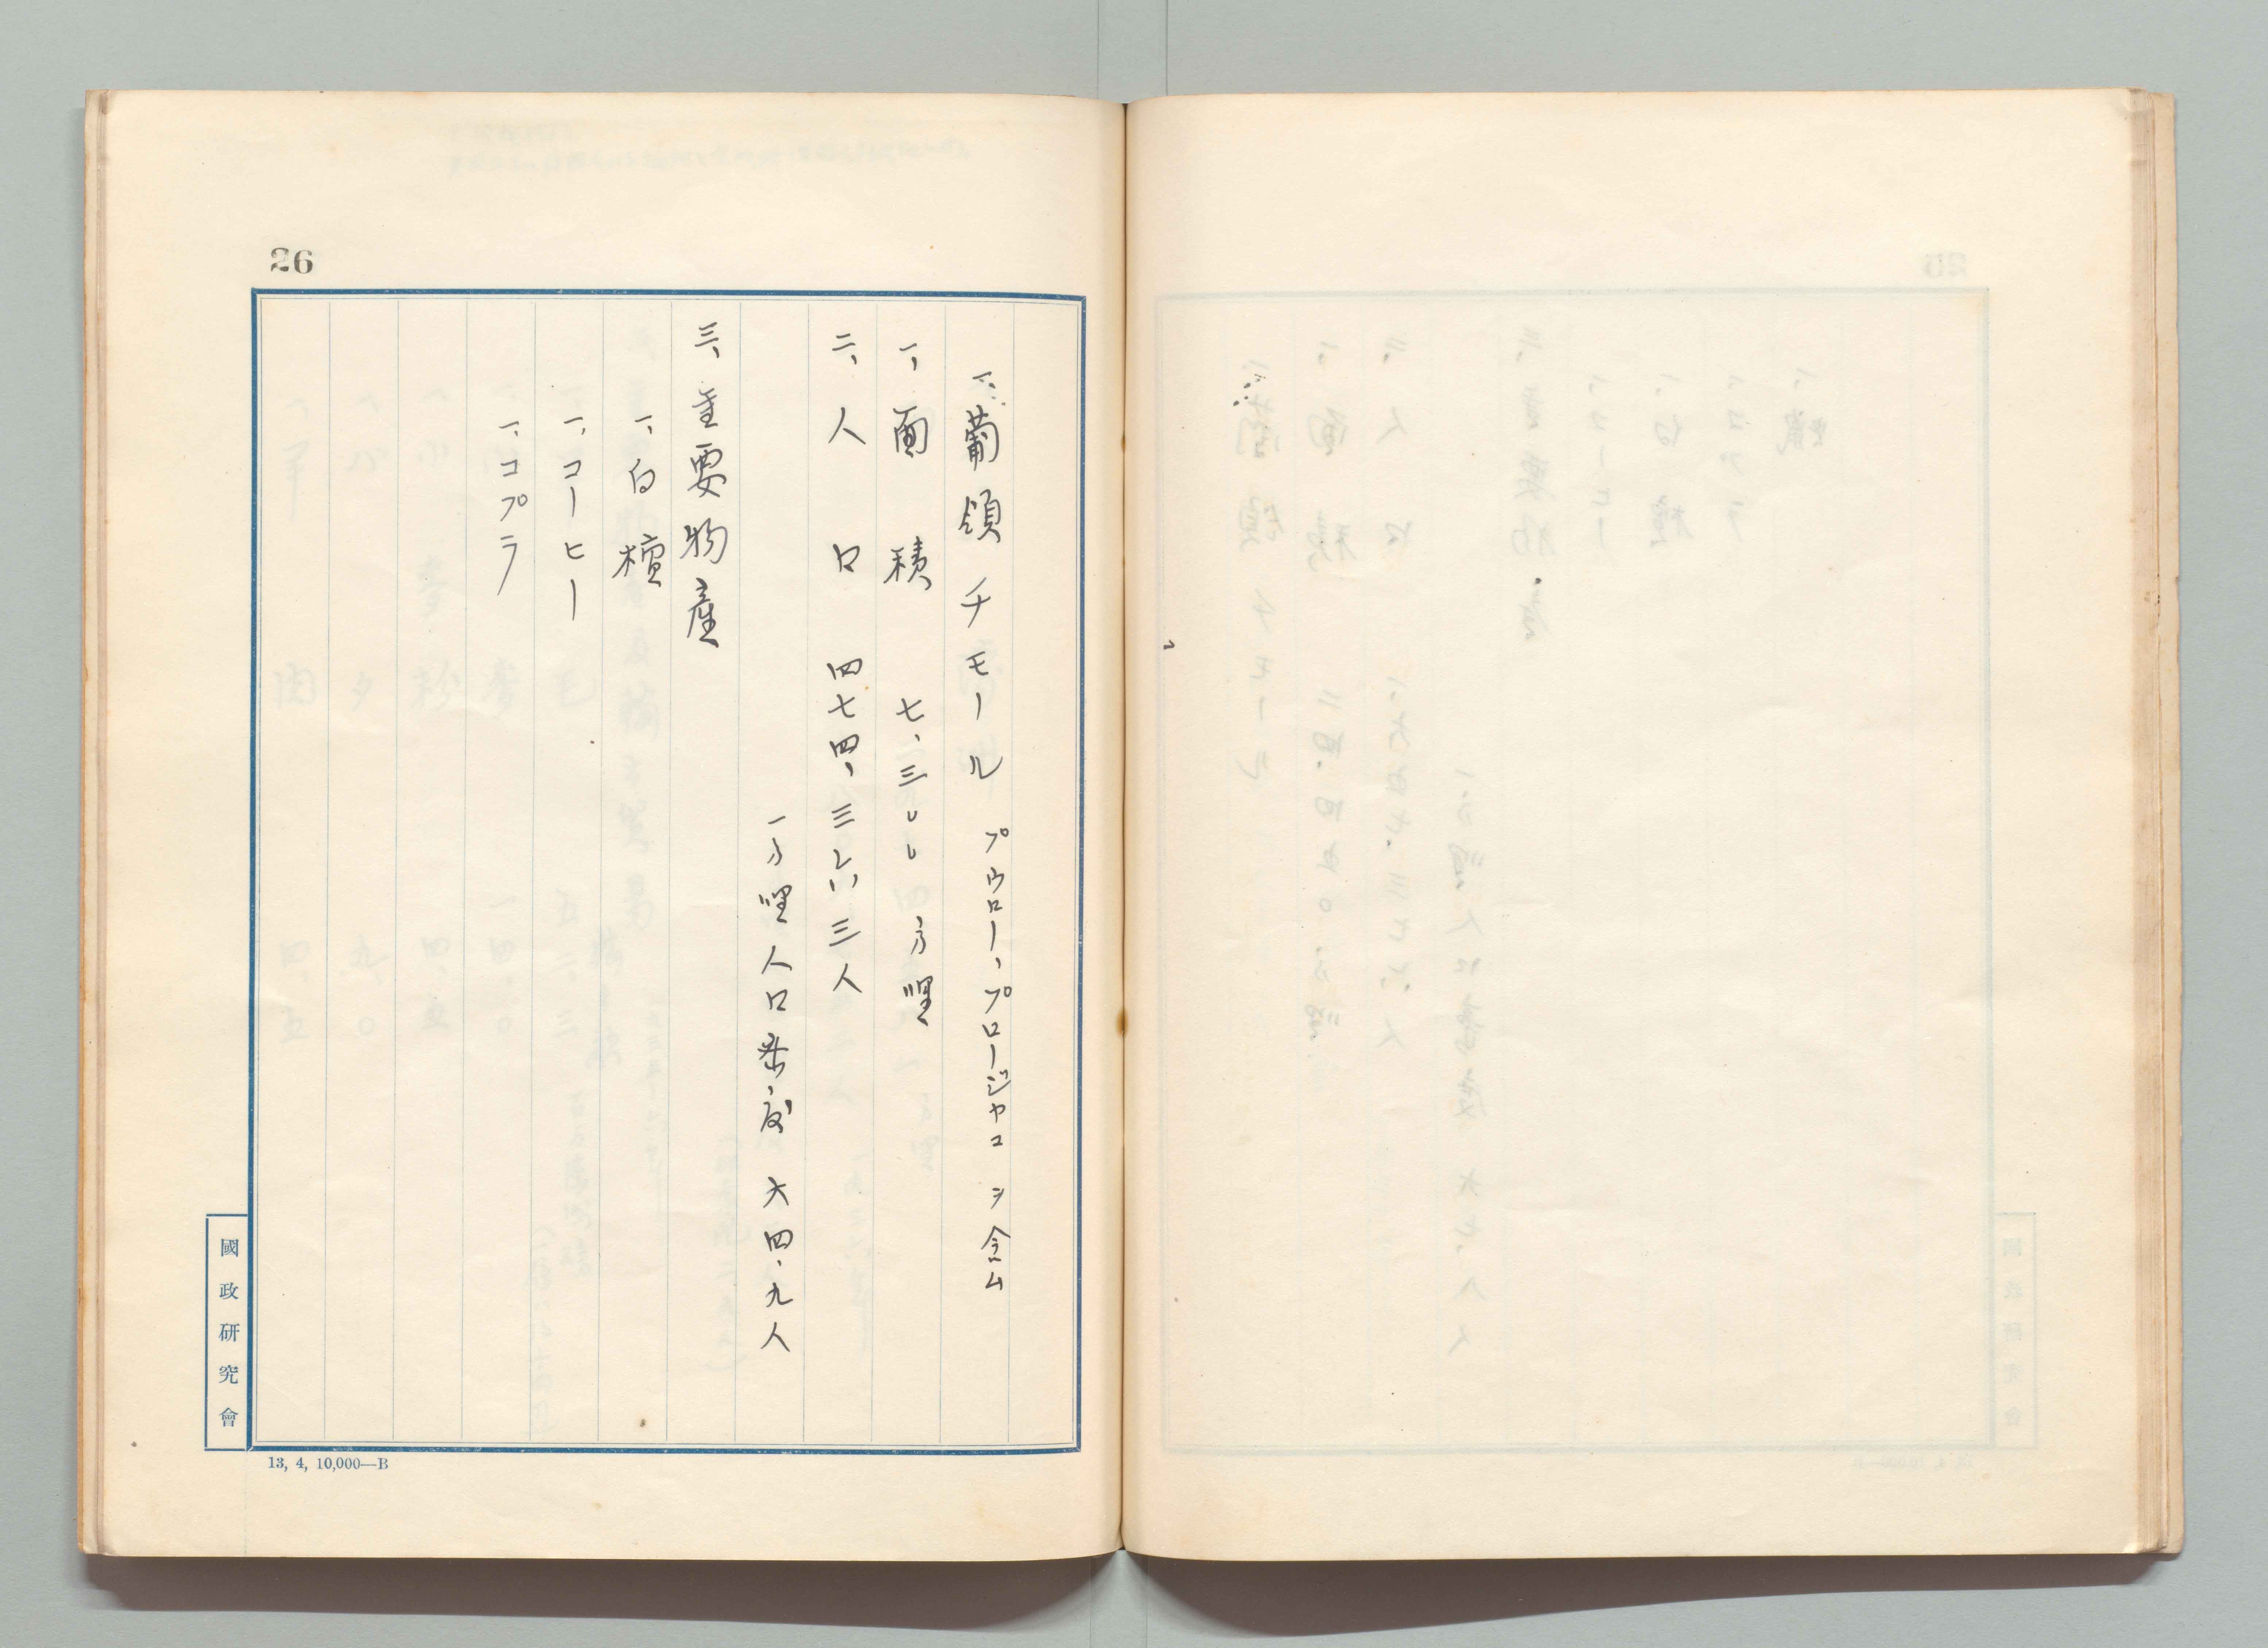 26
一、葡領チモール プウロー、プロージャコヲ含ム
一、面積 七、三〇〇方哩
二、人口 四七四、三六三人
一方哩人口密度 六四、九人
三、重要物産
一、白檀
一、コーヒー
一、コプラ
國政研究會
13, 4, 10,000—B